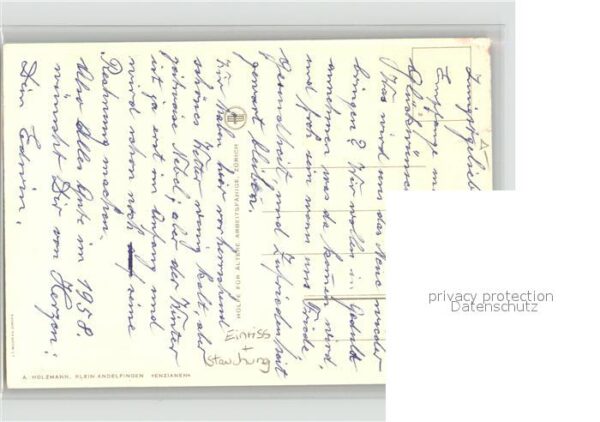 Innigstgeliebt
Empfange m
Glückwünsc
Was wird uns das Neue wieder
bringen? Wir wollen Geduld
annehmen was da kommen wird.
und froh sein wenn uns Friede,
Gesundheit, und Zufriedenheit
gewart bleiben.
Wir haben hier vorherrschend
schönes Wetter wenig kalt aber
zeitweise Nebel; aber der Winter
ist ja erst im Anfang und
wird schon noch seine
Rechnung machen.
Also Alles Gute im 1958.
wünscht Dir von Herzen:
Dein Edwin.
HÜLFE FÜR ÄLTERE ARBEITSFÄHIGE, ZÜRICH
Einriss
+
Stauchung
A. HOLZMANN, KLEIN ANDELFINGEN «ENZIANEN»
privacy protection
Datenschutz